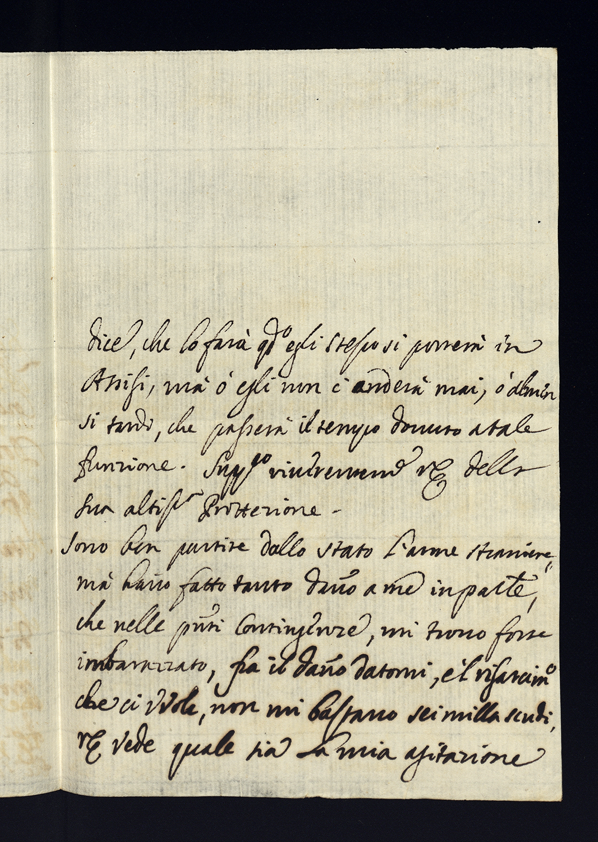 dice, che lo farà qdo egli stesso si porterà in
Assisi, mà ò egli non ci anderà mai, ò almen
si tardi, che passerà il tempo dovuto a tale
funzione. Suppco riuerentemte VE della
sua altissma Prottezione.
Sono ben partite dallo stato l'arme straniere,
mà hanno fatto tanto daño a me in parte,
che nelle pñti Contingenze, mi trouo forse
imbarazzato, frà il daño datomi, e'l risarcimto
che ci vvole, non mi bastano sei milla scudi,
VE vede quale sia la mia agitazione